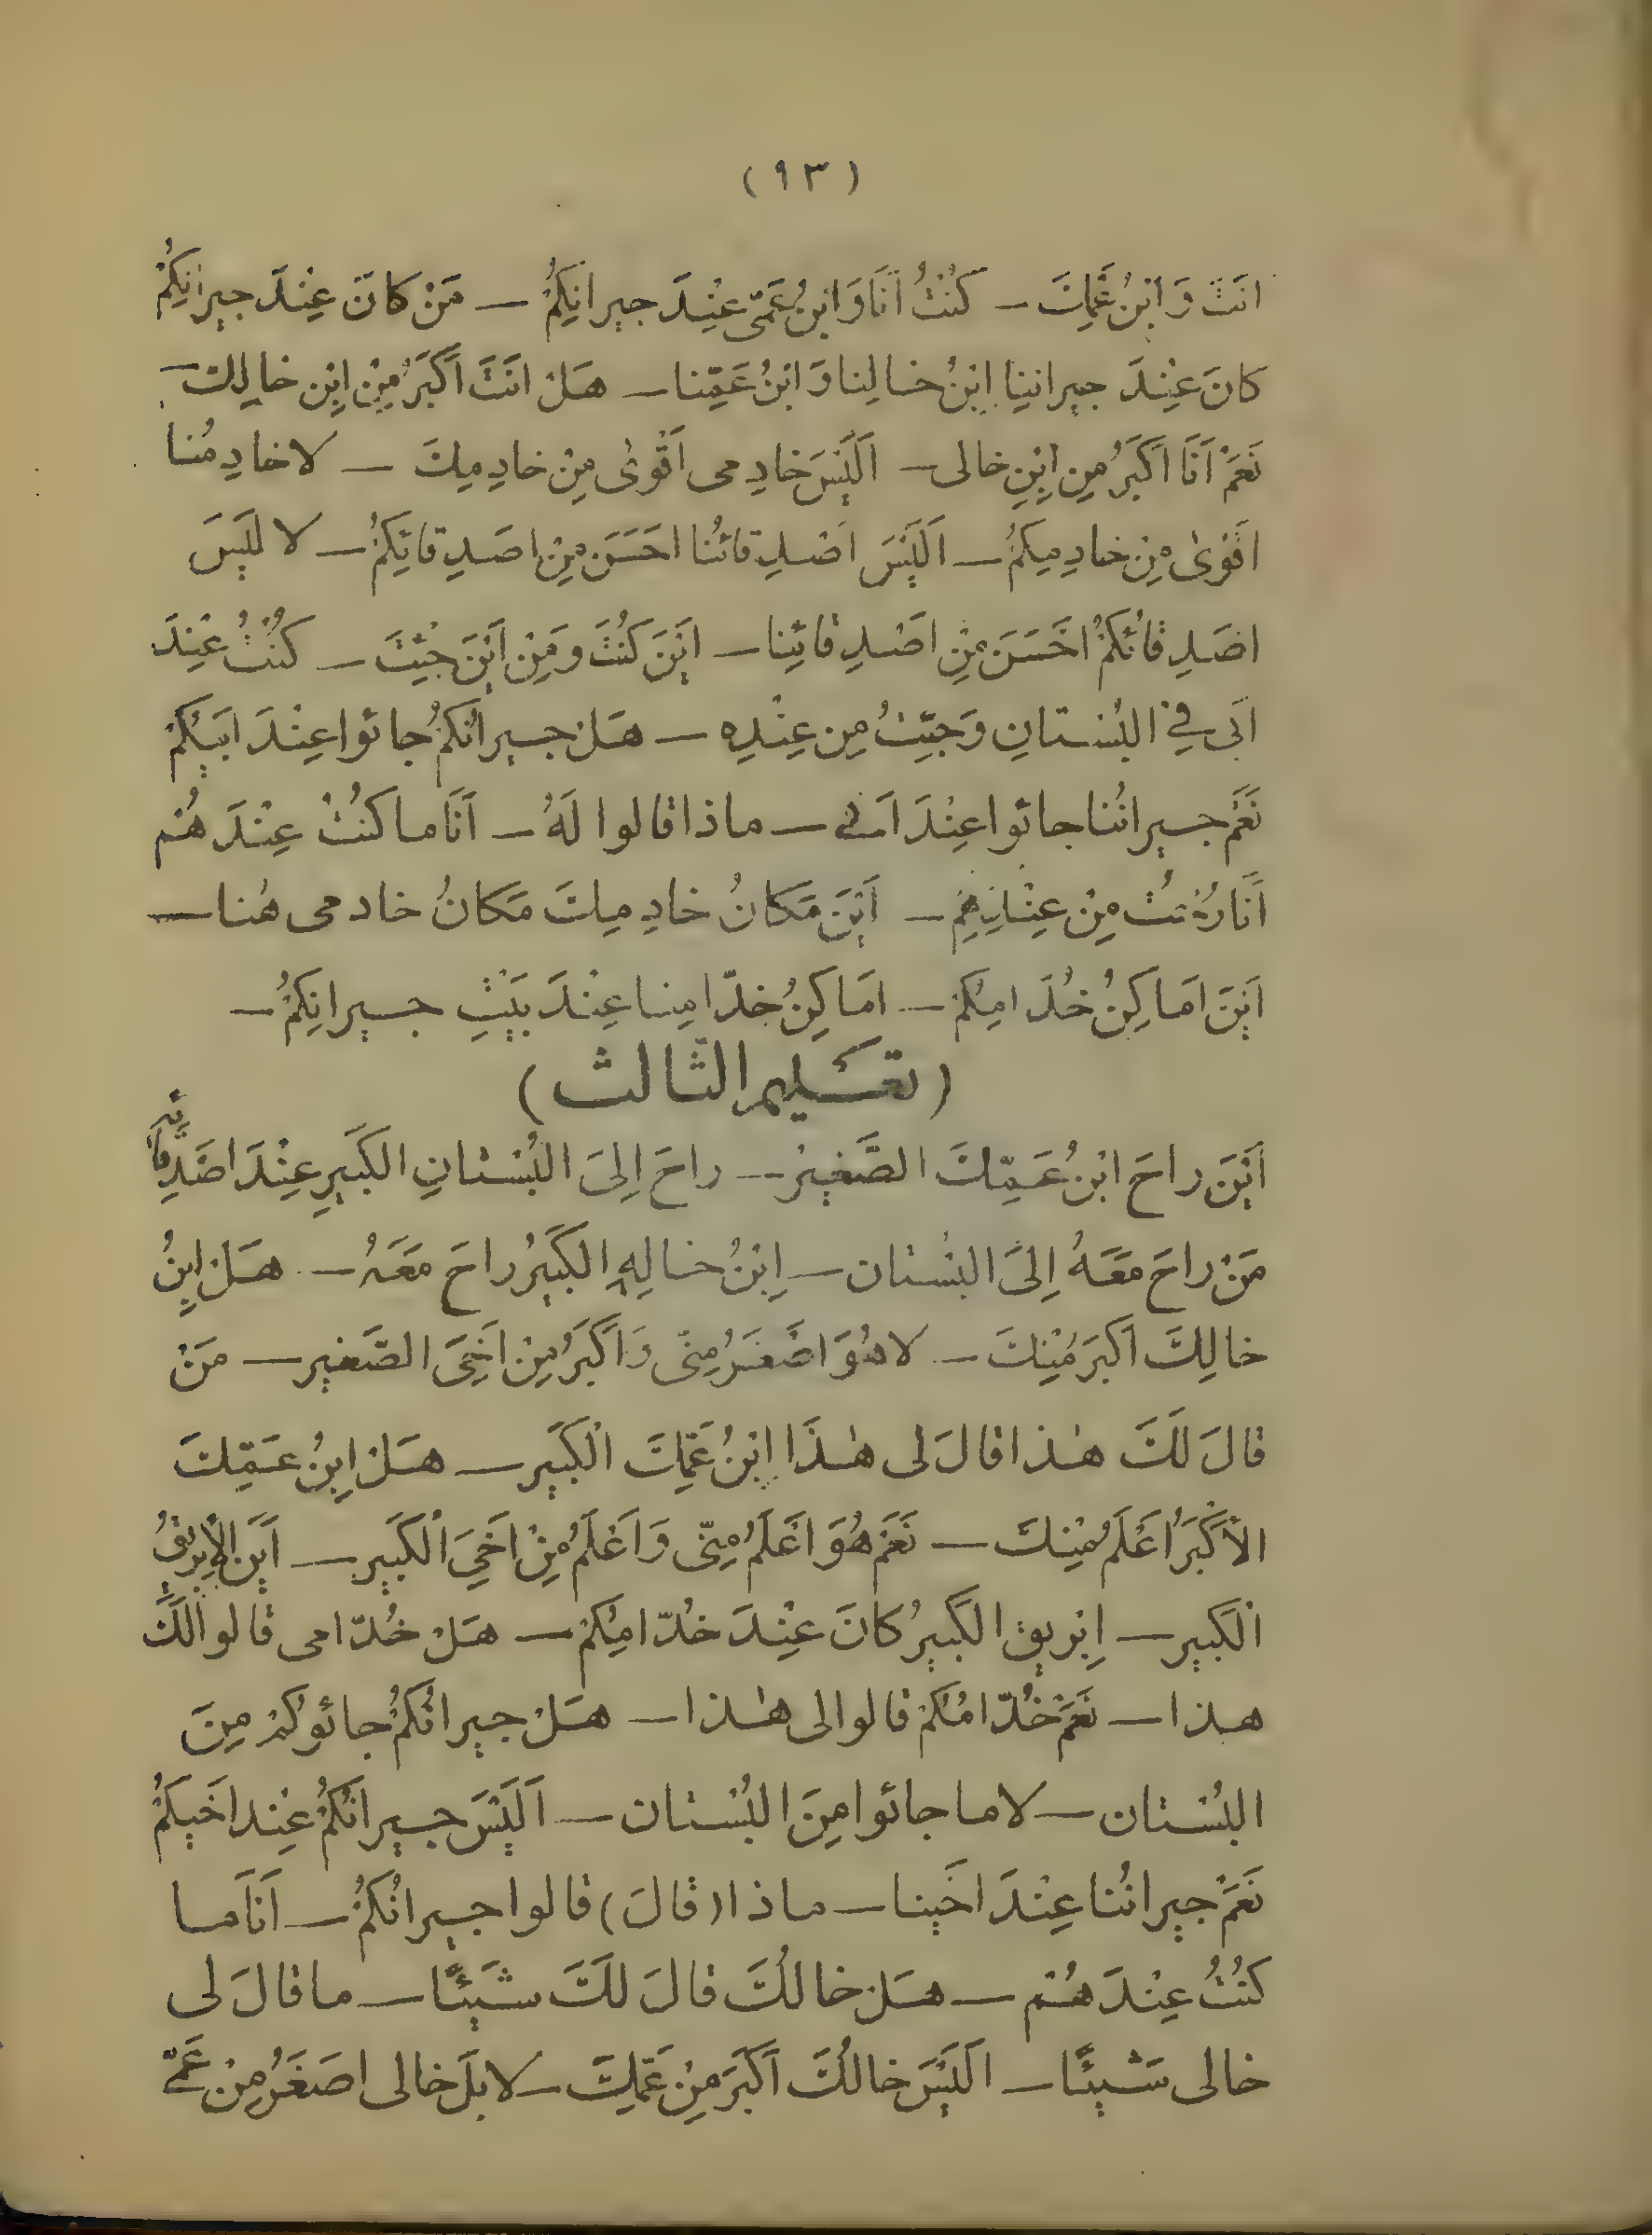 (٩٣)
انَتَ وَ ابْنُ عَمِّكَ — كُنْتُ اَنَا وَ ابْنُ عَمّى عِنْدَ جيرانِكُمْ — مَنْ كانَ عِنْدَ جيرانِكُمْ
كانَ عِنْدَ جيرانِنا اِبْنُ خالِنا وَ ابْنُ عَمِّنا — هَلْ انَتَ اَكْبَرُ مِنْ اِبْنِ خالِكَ —
نَعَمْ اَنَا اَكْبَرُ مِن اِبْنِ خالى — اَلَيْسَ خادِمى اَقْوىٰ مِنْ خادِمِكَ — لا خادِمُنا
اقْوىٰ مِنْ خادِمِكُمْ — اَلَيْسَ اَصْدِقائُنا احَسَنَ مِنْ اصَدِقائِكُمْ — لا لَيْسَ
اصَدِقائُكُمْ احَسَنَ مِنْ اَصْدِقائِنا — ايْنَ كُنْتَ وَ مِنْ اَيْنَ جِئْتَ — كُنْتُ عِنْدَ
اَبى فِي البُسْتانِ وَ جِئْتُ مِن عِنْدِهِ — هَلْ جيرانُكُمْ جائوا عِنْدَ ابَيكُمْ
نَعَمْ جيرانُنا جائوا عِنْدَ اَبى — ماذا قالوا لَهُ — اَنَا ما كُنْتُ عِنْدَ هُمْ
اَنَا رُحْتُ مِنْ عِنْدِهِمْ — اَيْنَ مَكانُ خادِمِكَ مَكانُ خادمى هُنا —
اَيْنَ امَاكِنُ خُدّامِكُمْ — امَاكِنُ خدّامِنا عِنْدَ بَيْتِ جيرانِكُمْ —
(تعَليم الثّالث)
اَيْنَ راحَ ابْنُ عَمِّكَ الصَّغيرْ — راحَ اِلىَ البُسْتانِ الكَبَيرِ عِنْدَ اصَدِقائِهِ
مَنْ راحَ مَعَهُ اِلىَ البُسْتان — اِبْنُ خالِهِ الكَبَيرُ راحَ مَعَهُ — هَلْ اِبْنُ
خالِكَ اَكْبَرَ مْنِكَ — لا هُوَ اَصْغَرُ مِنّى وَ اَكْبَرُ مِنْ اَخَىِ الصَّغير — مَنْ
قالَ لَكَ هٰذا قالَ لى هٰذَا اِبْنُ عَمِّكَ الْكَبَيرِ — هَلْ اِبْنُ عَمِّكَ
الأَكْبَرُ اَعْلَمُ مْنِكَ — نَعَمْ هُوَ اَعْلَمُ مِنّى وَ اَعْلَمُ مِنْ اَخَىِ الْكَبَيرِ — اَيْنَ الْاِبْريقُ
الْكَبير — اِبْريق الكَبيرُ كانَ عِنْدَ خُدّامِكُمْ — هَلْ خُدّامى قالوا لَكَ
هذا — نَعَمْ خُدّامُكُمْ قالوا لى هٰذا — هَلْ جيرانُكُمْ جائوكُمْ مِنَ
البُسْتان — لا ما جائوا مِنَ البُسْتان — اَلَيْسَ جيرانُكُمْ عِنْد اَخَيكُمْ
نَعَمْ جيرانُنا عِنْدَ اخَينا — ماذا (قالَ) قالوا جيرانُكُمْ — اَنَا ما
كُنْتُ عِنْدَ هُمْ — هَلْ خالُكَ قالَ لَكَ شَيْئًا — ما قالَ لى
خالى شَيْئًا — الَيْسَ خالُكَ اَكْبَرَ مِنْ عَمِّكَ — لا بَلْ خالى اصَغَرُ مِنْ عَمّى